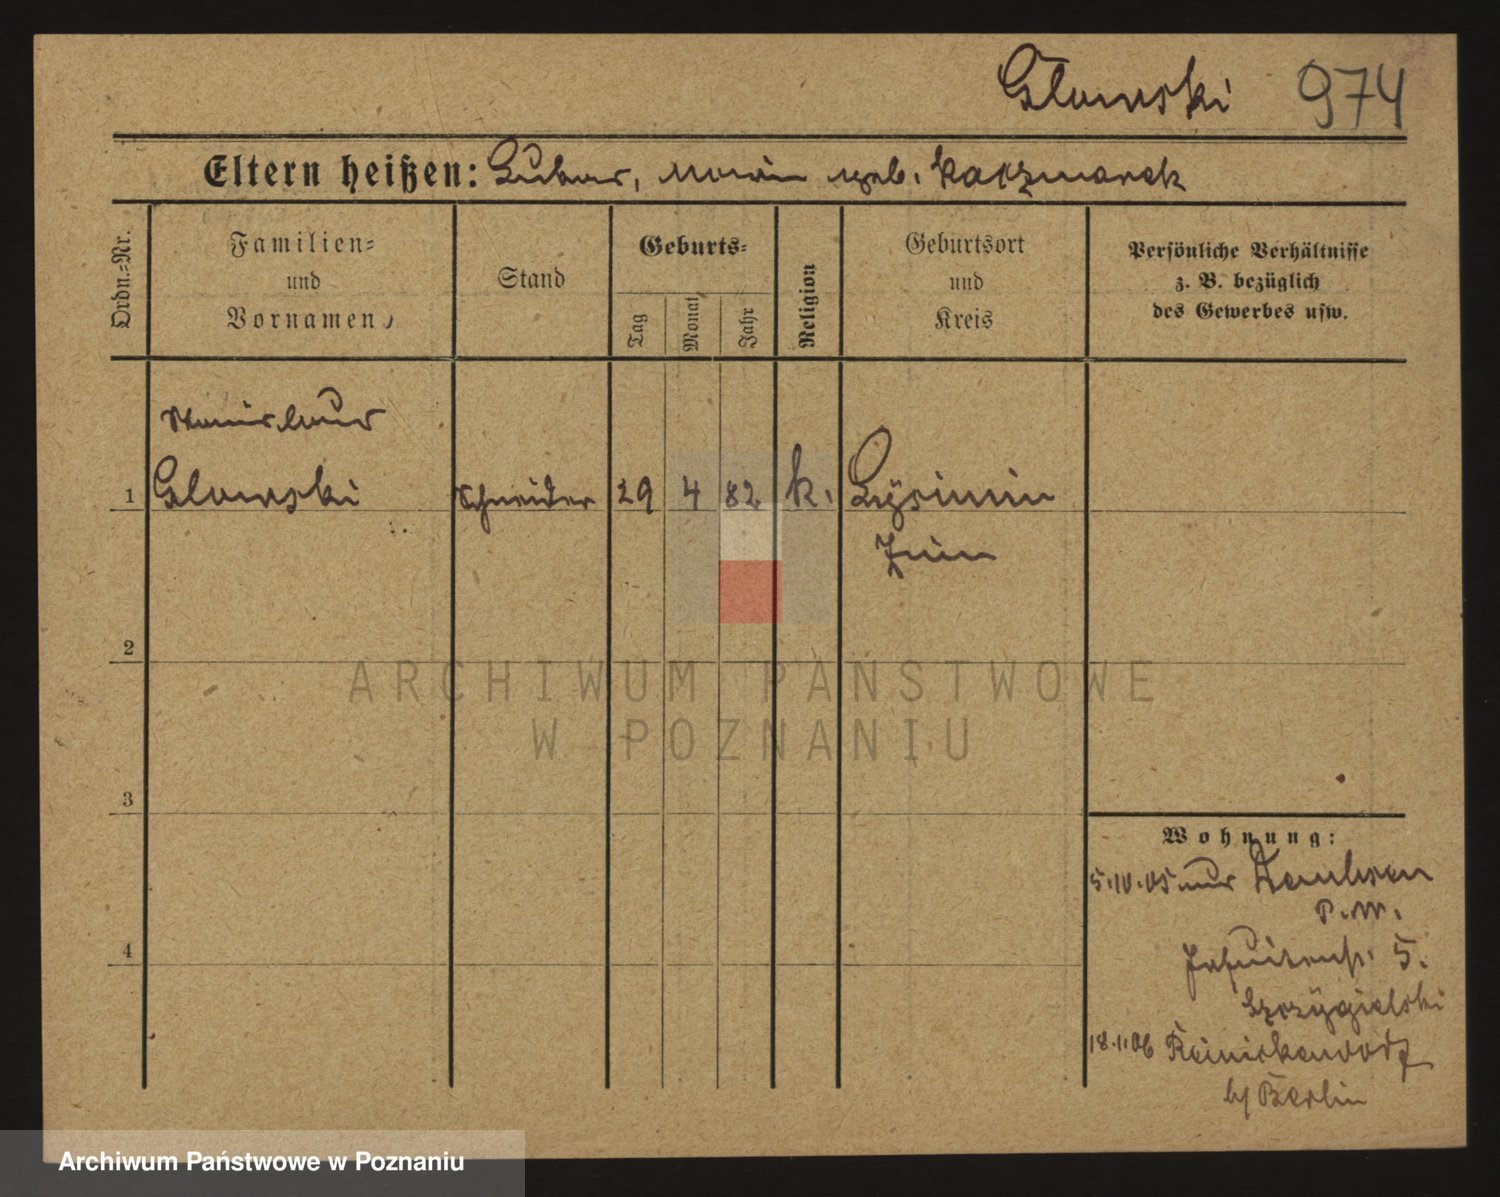 Glowski 974
Eltern heißen: Lukas, Maria geb. Kaczmarek
Ordn.-Nr.
Familien-
und
Vornamen
Stand
Geburts-
Tag
Monat
Jahr
Religion
Geburtsort
und
Kreis
Persönliche Verhältnisse
z. B. bezüglich
des Gewerbes usw.
Stanislaus
1 Glowski Schneider 29 4 82 k.
Znin
2
3
4
Wohnung:
5.10.05 aus
P.W.
Jesuitenstr. 5.
18.1.06 Reinickendorf
b/ Berlin
ARCHIWUM PAŃSTWOWE
W POZNANIU
Archiwum Państwowe w Poznaniu